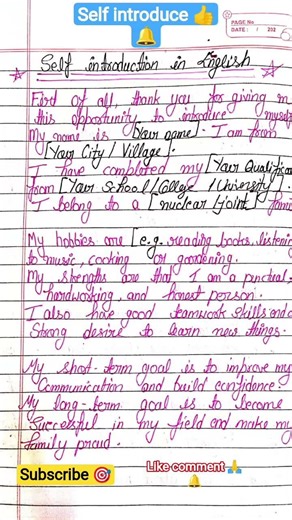 Self introduce 👍
🔔
PAGE No
DATE: / 202
Self introduction in English
First of all, thank you for giving m
this opportunity to introduce myself
My name is [Your name]. I am from
[Your City / Village].
I have completed my [Your Qualifica
from [Your School / College / University].
I belong to a [nuclear/joint] famil
My hobbies are [e.g. reading books, listening
to music, cooking or gardening.
My strengths are that I am a punctual,
hardworking, and honest person.
I also have good teamwork skills and a
strong desire to learn new things.
My short-term goal is to improve my
Communication and build confidence
My long-term goal is to become
Successful in my field and make my
family proud.
Like comment 🙏
Subscribe 🎯
🔔